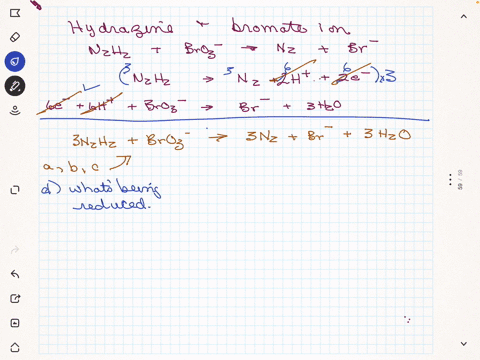 Hydrazine & bromate ion
N₂H₂ + BrO₃⁻ → N₂ + Br⁻
(³N₂H₂ → ³N₂ + ⁶2H⁺ + ⁶2e⁻) x3
6e⁻ + 6H⁺ + BrO₃⁻ → Br⁻ + 3H₂O
3N₂H₂ + BrO₃⁻ → 3N₂ + Br⁻ + 3H₂O
a, b, c
d) what's being
reduced.
59 / 59